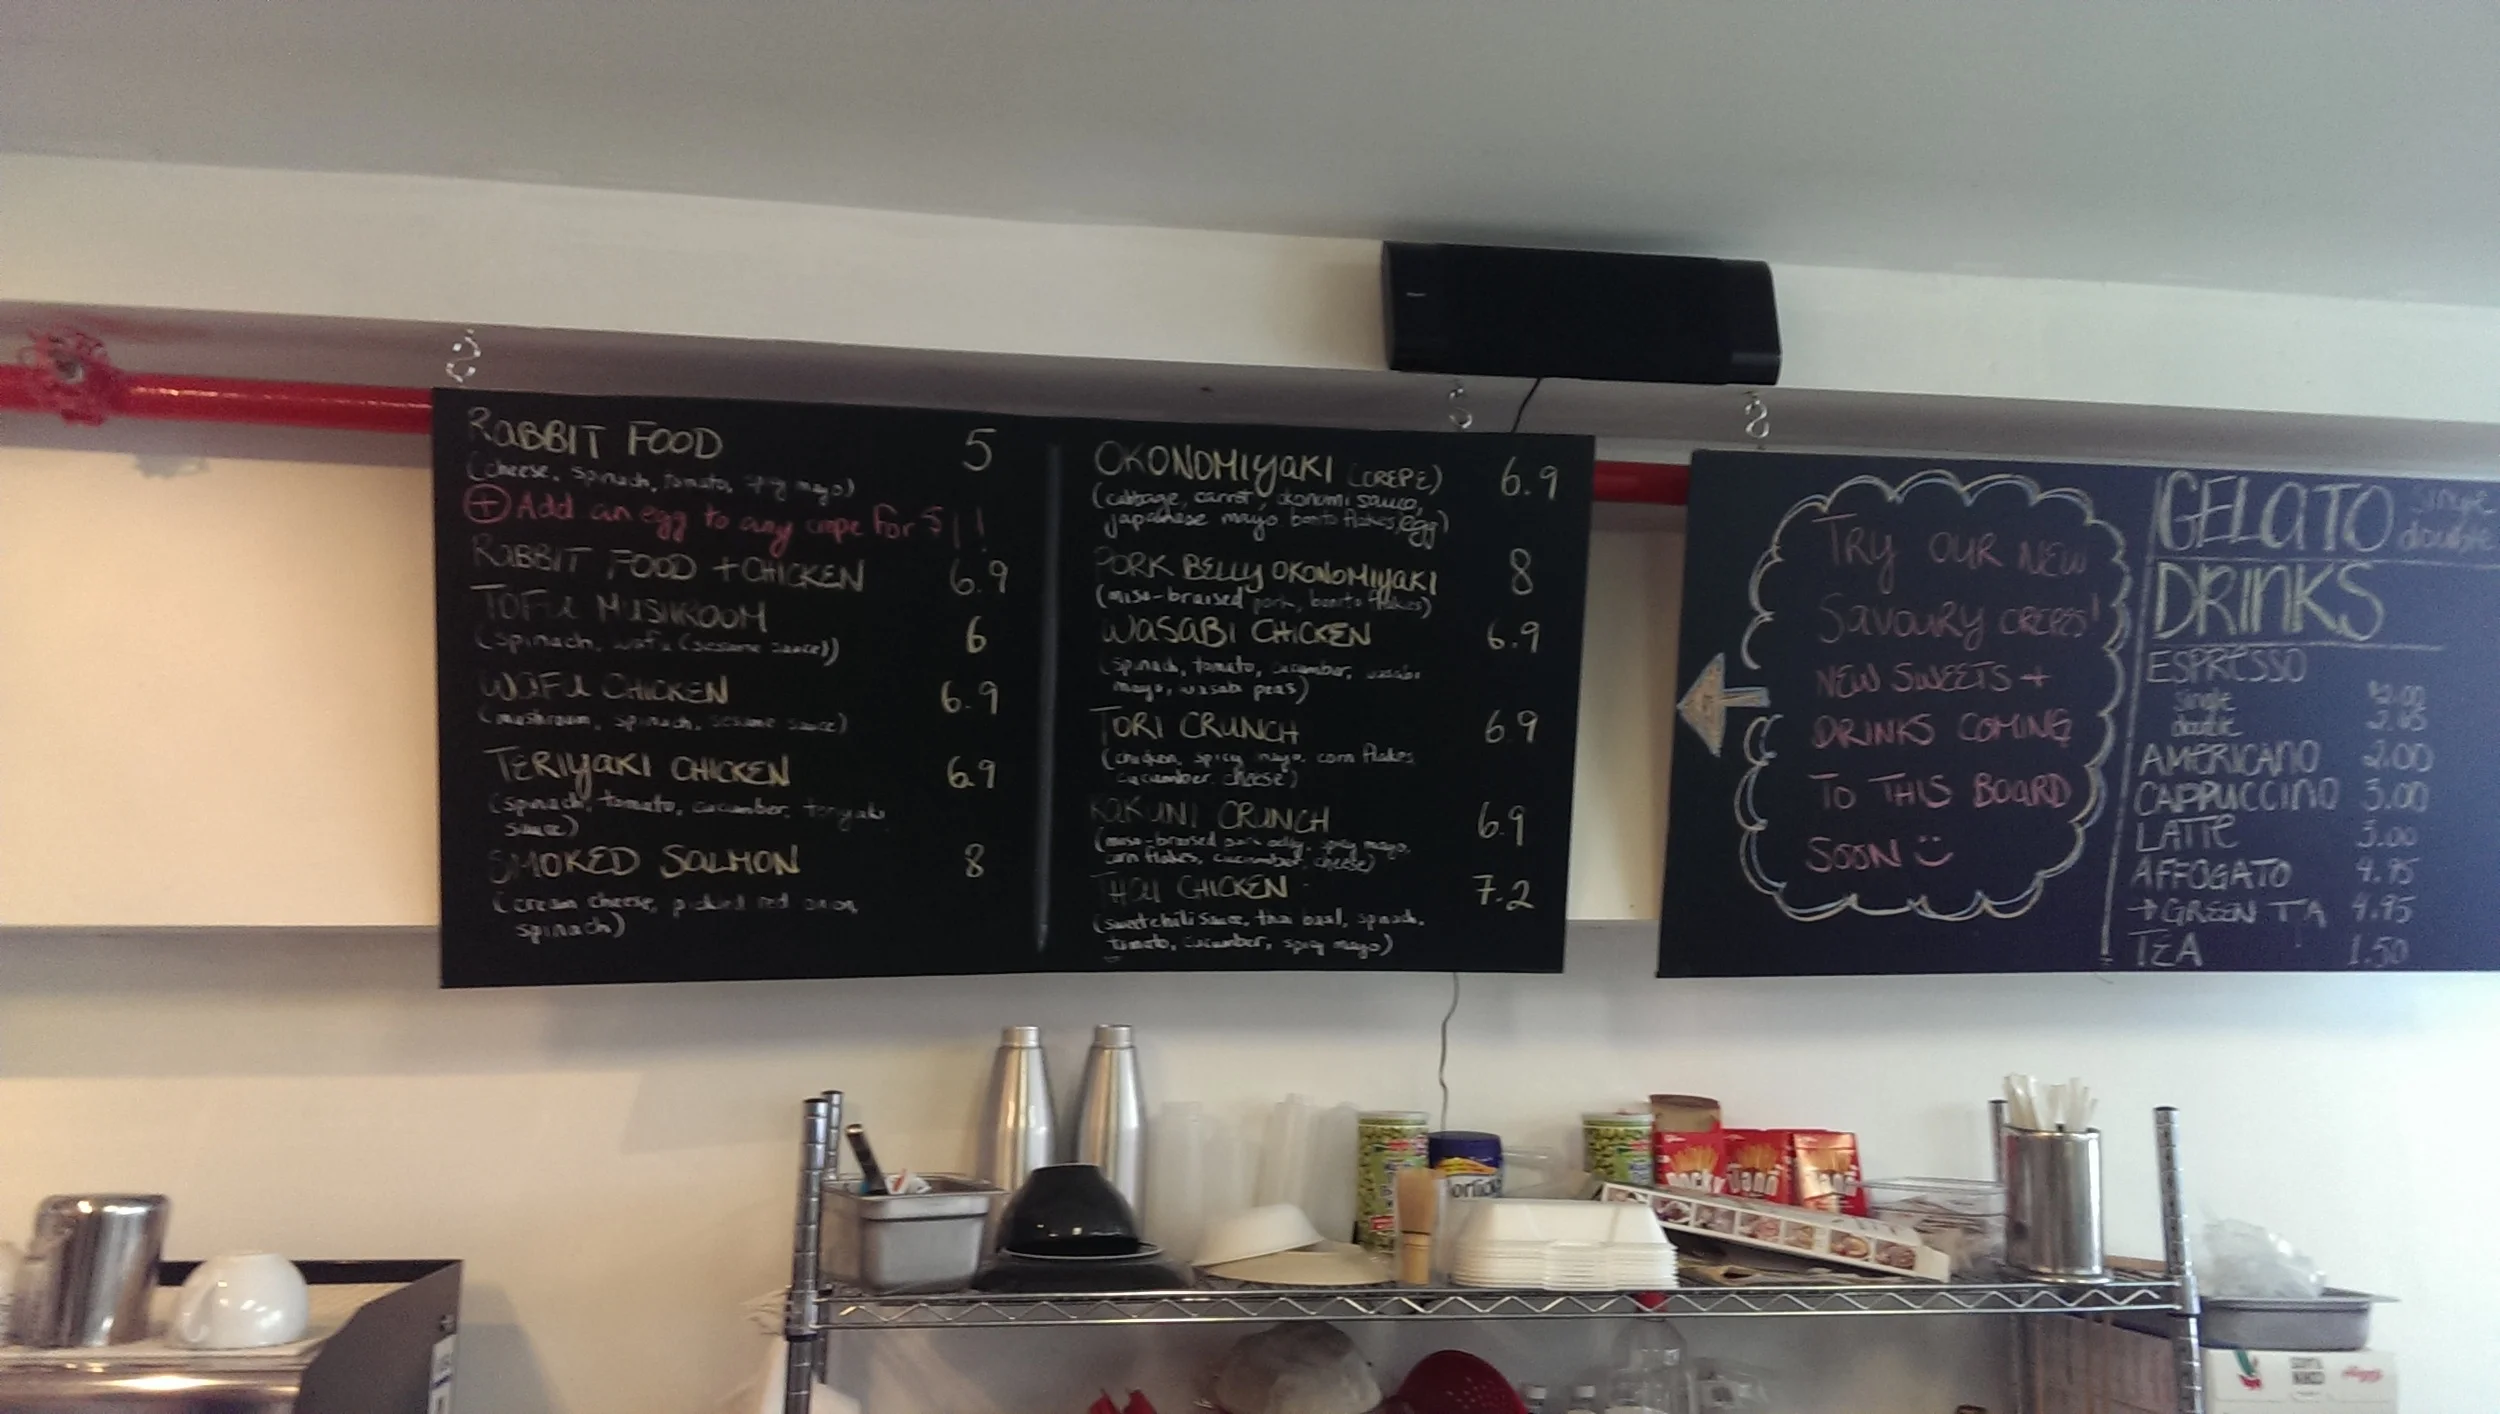 RABBIT FOOD 5
(cheese, spinach, tomato, spicy mayo)
+ Add an egg to any crepe for $1!
RABBIT FOOD + CHICKEN 6.9
TOFU MUSHROOM 6
(spinach, wafu (sesame sauce))
WAFU CHICKEN 6.9
(mushroom, spinach, sesame sauce)
TERIYAKI CHICKEN 6.9
(spinach, tomato, cucumber, teriyaki
sauce)
SMOKED SALMON 8
(cream cheese, pickled red onion,
spinach)
OKONOMIYAKI (CREPE) 6.9
(cabbage, carrot, okonomi sauce,
japanese mayo bonito flakes, egg)
PORK BELLY OKONOMIYAKI 8
(miso-braised pork, bonito flakes)
WASABI CHICKEN 6.9
(spinach, tomato, cucumber, wasabi
mayo, wasabi peas)
TORI CRUNCH 6.9
(chicken, spicy mayo, corn flakes,
cucumber, cheese)
KAKUNI CRUNCH 6.9
(miso-braised pork belly, spicy mayo,
corn flakes, cucumber, cheese)
THAI CHICKEN 7.2
(sweet chili sauce, thai basil, spinach,
tomato, cucumber, spicy mayo)
TRY OUR NEW
SAVOURY CREPES!
NEW SWEETS +
DRINKS COMING
TO THIS BOARD
SOON
GELATO single
double
DRINKS
ESPRESSO
single
double
AMERICANO 2.00
CAPPUCCINO 3.00
LATTE 3.00
AFFOGATO 4.95
→ GREEN TEA 4.95
TEA 1.50